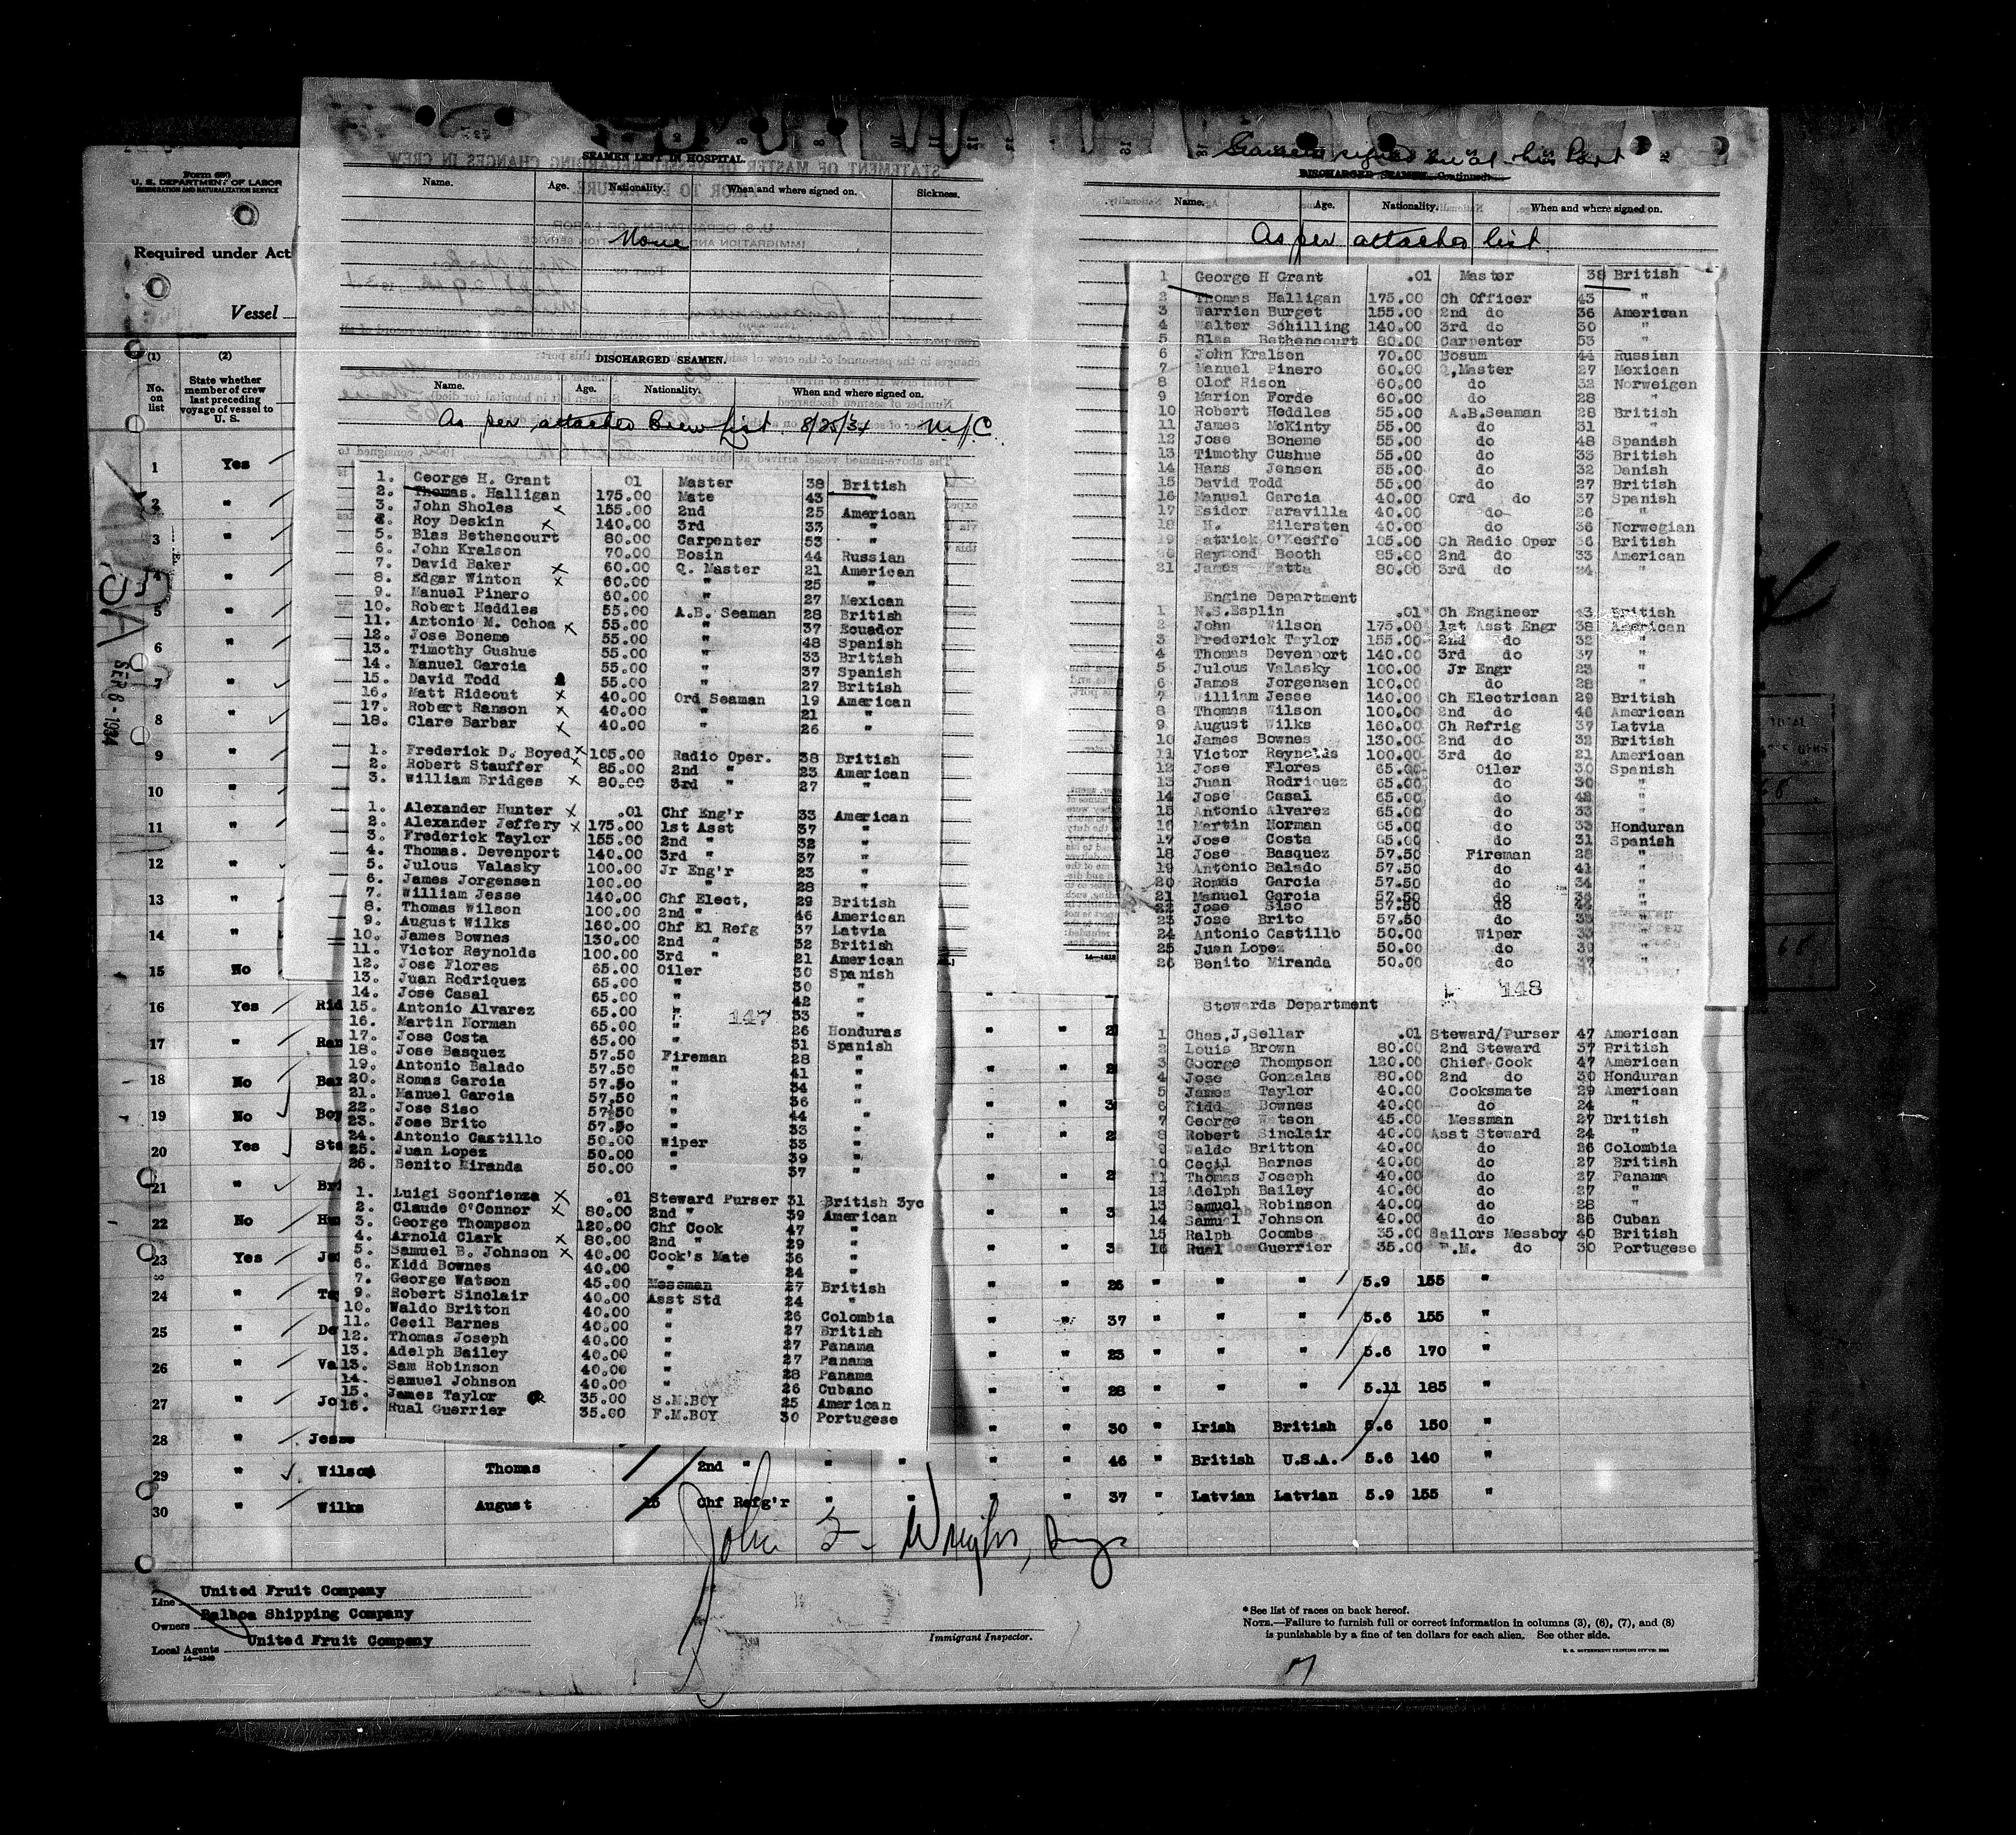 Form 680
U. S. DEPARTMENT OF LABOR
IMMIGRATION AND NATURALIZATION SERVICE
Required under Act
Vessel
(1) (2)
No. on list
State whether member of crew last preceding voyage of vessel to U. S.
1 Yes
2 "
3 "
4 "
5 "
6 "
7 "
8 "
9 "
10 "
11 "
12 "
13 "
14 "
15 No
16 Yes Rid
17 " Ran
18 No Bar
19 No Boy
20 Yes Sta
21 " Bri
22 No Hun
23 Yes Je
24 " Ta
25 " De
26 " Va
27 " Jo
28 " Jesse
29 " Wilson Thomas 2nd " " " " " 46 " British U.S.A. 5.6 140 "
30 " Wilks August 15 Chf Refg'r " " " " 37 " Latvian Latvian 5.9 155 "
SEP 8 - 1934
SEAMEN LEFT IN HOSPITAL.
Name. Age. Nationality. When and where signed on. Sickness.
None
DISCHARGED SEAMEN.
Name. Age. Nationality. When and where signed on.
As per attached Crew List 8/25/34
1. George H. Grant 01 Master 38 British
2. Thomas. Halligan 175.00 Mate 43 "
3. John Sholes 155.00 2nd 25 American
4. Roy Deskin x 140.00 3rd 33 "
5. Blas Bethencourt 80.00 Carpenter 53 "
6. John Kralson 70.00 Bosin 44 Russian
7. David Baker x 60.00 Q. Master 21 American
8. Edgar Winton x 60.00 " 25 "
9. Manuel Pinero 60.00 " 27 Mexican
10. Robert Heddles 55.00 A.B. Seaman 28 British
11. Antonio M. Ochoa x 55.00 " 37 Ecuador
12. Jose Boneme 55.00 " 48 Spanish
13. Timothy Gushue 55.00 " 33 British
14. Manuel Garcia 55.00 " 37 Spanish
15. David Todd 55.00 " 27 British
16. Matt Rideout x 40.00 Ord Seaman 19 American
17. Robert Ranson x 40.00 " 21 "
18. Clare Barbar x 40.00 " 26 "
1. Frederick D. Boyed x 105.00 Radio Oper. 38 British
2. Robert Stauffer x 85.00 2nd " 23 American
3. William Bridges x 80.00 3rd " 27 "
1. Alexander Hunter x .01 Chf Eng'r 33 American
2. Alexander Jeffery x 175.00 1st Asst 37 "
3. Frederick Taylor 155.00 2nd " 32 "
4. Thomas. Devenport 140.00 3rd " 37 "
5. Julous Valasky 100.00 Jr Eng'r 23 "
6. James Jorgensen 100.00 " 28 "
7. William Jesse 140.00 Chf Elect, 29 British
8. Thomas Wilson 100.00 2nd " 46 American
9. August Wilks 160.00 Chf El Refg 37 Latvia
10. James Bownes 130.00 2nd " 32 British
11. Victor Reynolds 100.00 3rd " 21 American
12. Jose Flores 65.00 Oiler 30 Spanish
13. Juan Rodriquez 65.00 " 30 "
14. Jose Casal 65.00 " 42 "
15. Antonio Alvarez 65.00 " 33 "
147
16. Martin Norman 65.00 " 26 Honduras
17. Jose Costa 65.00 " 31 Spanish
18. Jose Basquez 57.50 Fireman 28 "
19. Antonio Balado 57.50 " 41 "
20. Romas Garcia 57.50 " 34 "
21. Manuel Garcia 57.50 " 36 "
22. Jose Siso 57.50 " 44 "
23. Jose Brito 57.50 " 33 "
24. Antonio Castillo 50.00 Wiper 33 "
25. Juan Lopez 50.00 " 39 "
26. Benito Miranda 50.00 " 37 "
1. Luigi Sconfienza x .01 Steward Purser 31 British 3yc
2. Claude O'Connor x 80.00 2nd " 39 American
3. George Thompson 120.00 Chf Cook 47 "
4. Arnold Clark x 80.00 2nd " 29 "
5. Samuel B. Johnson x 40.00 Cook's Mate 36 "
6. Kidd Bownes 40.00 " 24 "
7. George Watson 45.00 Messman 27 British
9. Robert Sinclair 40.00 Asst Std 24 "
10. Waldo Britton 40.00 " 26 Colombia
11. Cecil Barnes 40.00 " 27 British
12. Thomas Joseph 40.00 " 27 Panama
13. Adelph Bailey 40.00 " 27 Panama
13. Sam Robinson 40.00 " 28 Panama
14. Samuel Johnson 40.00 " 26 Cubano
15. James Taylor 35.00 S.M.BOY 25 American
16. Rual Guerrier 35.00 F.M.BOY 30 Portugese
Seamen signed on at this Port
DISCHARGED SEAMEN. Continued
Name. Age. Nationality. When and where signed on.
As per attached list
1 George H Grant .01 Master 38 British
2 Thomas Halligan 175.00 Ch Officer 43 "
3 Warrien Burget 155.00 2nd do 36 American
4 Walter Schilling 140.00 3rd do 30 "
5 Blas Bethencourt 80.00 Carpenter 53 "
6 John Kralson 70.00 Bosum 44 Russian
7 Manuel Pinero 60.00 Q,Master 27 Mexican
8 Olof Rison 60.00 do 32 Norweigen
9 Marion Forde 60.00 do 28 "
10 Robert Heddles 55.00 A.B.Seaman 28 British
11 James McKinty 55.00 do 31 "
12 Jose Boneme 55.00 do 48 Spanish
13 Timothy Cushue 55.00 do 33 British
14 Hans Jensen 55.00 do 32 Danish
15 David Todd 55.00 do 27 British
16 Manuel Garcia 40.00 Ord do 37 Spanish
17 Esidor Paravilla 40.00 do 26 "
18 H. Eilersten 40.00 do 36 Norwegian
19 Patrick O'Keeffe 105.00 Ch Radio Oper 36 British
20 Raymond Booth 85.00 2nd do 33 American
21 James Fatta 80.00 3rd do 24 "
Engine Department
1 N.S.Esplin .01 Ch Engineer 43 British
2 John Wilson 175.00 1st Asst Engr 38 American
3 Frederick Taylor 155.00 2nd do 32 "
4 Thomas Devenport 140.00 3rd do 37 "
5 Julous Valasky 100.00 Jr Engr 23 "
6 James Jorgensen 100.00 do 28 "
7 William Jesse 140.00 Ch Electrican 29 British
8 Thomas Wilson 100.00 2nd do 46 American
9 August Wilks 160.00 Ch Refrig 37 Latvia
10 James Bownes 130.00 2nd do 32 British
11 Victor Reynolds 100.00 3rd do 21 American
12 Jose Flores 65.00 Oiler 30 Spanish
13 Juan Rodriquez 65.00 do 30 "
14 Jose Casal 65.00 do 42 "
15 Antonio Alvarez 65.00 do 33 "
16 Martin Norman 65.00 do 33 Honduran
17 Jose Costa 65.00 do 31 Spanish
18 Jose Basquez 57.50 Fireman 28 "
19 Antonio Balado 57.50 do 41 "
20 Romas Garcia 57.50 do 34 "
21 Manuel Garcia 57.50 do "
22 Jose Siso 57.50 do "
23 Jose Brito 57.50 do "
24 Antonio Castillo 50.00 Wiper 33 "
25 Juan Lopez 50.00 do 39 "
26 Benito Miranda 50.00 do 37 "
148
Stewards Department
1 Chas,J,Sellar .01 Steward/Purser 47 American
2 Louis Brown 80.00 2nd Steward 37 British
3 George Thompson 120.00 Chief Cook 47 American
4 Jose Gonzalas 80.00 2nd do 30 Honduran
5 James Taylor 40.00 Cooksmate 29 American
6 Kidd Bownes 40.00 do 24 "
7 George Watson 45.00 Messman 27 British
8 Robert Sinclair 40.00 Asst Steward 24 "
9 Waldo Britton 40.00 do 26 Colombia
10 Cecil Barnes 40.00 do 27 British
11 Thomas Joseph 40.00 do 27 Panama
12 Adelph Bailey 40.00 do 27 "
13 Samuel Robinson 40.00 do 28 "
14 Samuel Johnson 40.00 do 26 Cuban
15 Ralph Coombs 35.00 Sailors Messboy 40 British
16 Rual Guerrier 35.00 F.M. do 30 Portugese
26 " " " 5.9 155 "
37 " " " 5.6 155 "
23 " " " 5.6 170 "
28 " " " 5.11 185 "
30 " Irish British 5.6 150 "
Line United Fruit Company
Owners Balboa Shipping Company
Local Agents United Fruit Company
14—1240
Immigrant Inspector.
*See list of races on back hereof.
NOTE.—Failure to furnish full or correct information in columns (3), (6), (7), and (8)
is punishable by a fine of ten dollars for each alien. See other side.